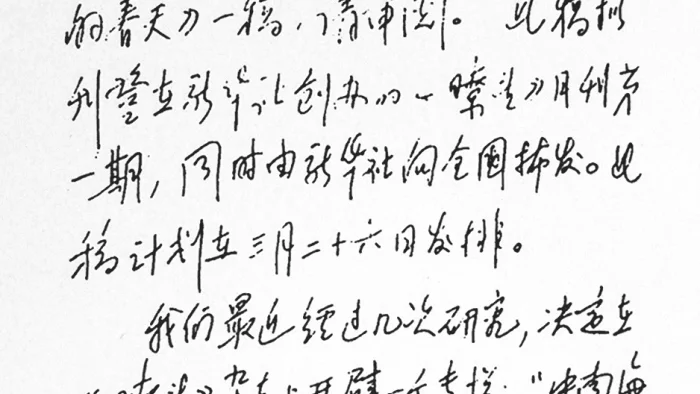 的春天》一稿，请审阅。此稿拟
刊登在新华社创办的《瞭望》月刊第
一期，同时由新华社向全国播发。此
稿计划在三月二十六日发排。
我们最近经过几次研究，决定在
《瞭望》杂志上开辟一个专栏："中南海